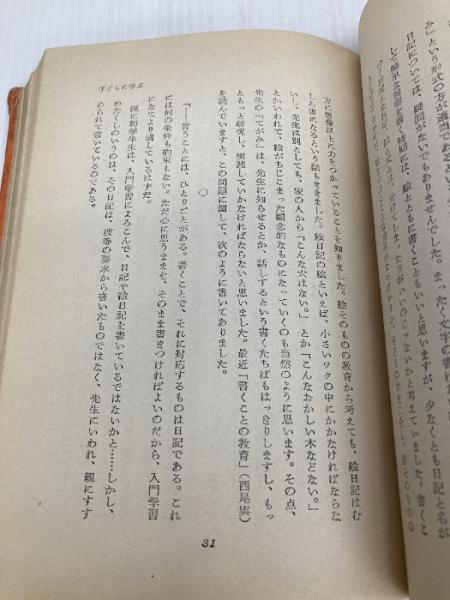 か」という形式の方が適当であるとい
日記については、疑問がないでもありませんでした。まったく文字の書け
して簡単な説明を書く時間には、絵とともに書くこともいいと思いますが、少なくとも日記と名が
方に想像以上に力をつかっていることを知りました。絵そのものの教育から考えても、絵日記はむ
しろ害になるという話もききました。絵日記の絵といえば、小さいワクの中にかかなければならな
いし、先生は別としても、家の人から「こんな犬はない。」とか「こんなおかしい木などない。」
とかいわれて、絵がちぢこまった観念的なものになっていくのも当然のように思います。その点、
先生の「てがみ」は、先生に知らせるとか、話しするという書くたちばもはっきりしますし、もっ
ともっと研究し、実践していかなければならないと思いました。最近「書くことの教育」(西尾実)
を読んでいますと、この問題に関して、次のように書いてありました。
○
「……言うことには、ひとりごとがある。書くことで、それに対応するものは日記である。これ
には何の条件も約束もない。ただ心に思うままを、そのまま書きつければよいのだから、入門学習
になにより適しているはずだ。
現に初学年生は、入門学習によろこんで、日記や絵日記を書いているではないかと……しかし、
わたくしのいうのは、その日記は、彼等の要求から書いたものではなく、先生にいわれ、親にすす
められて書いているのである。
子どもに学ぶ
31